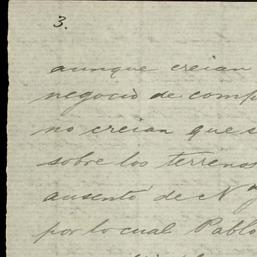 3.
aunque creian
negocio de comp
no creian que s
sobre los terrenos
ausentó de N
por lo cual Pablo